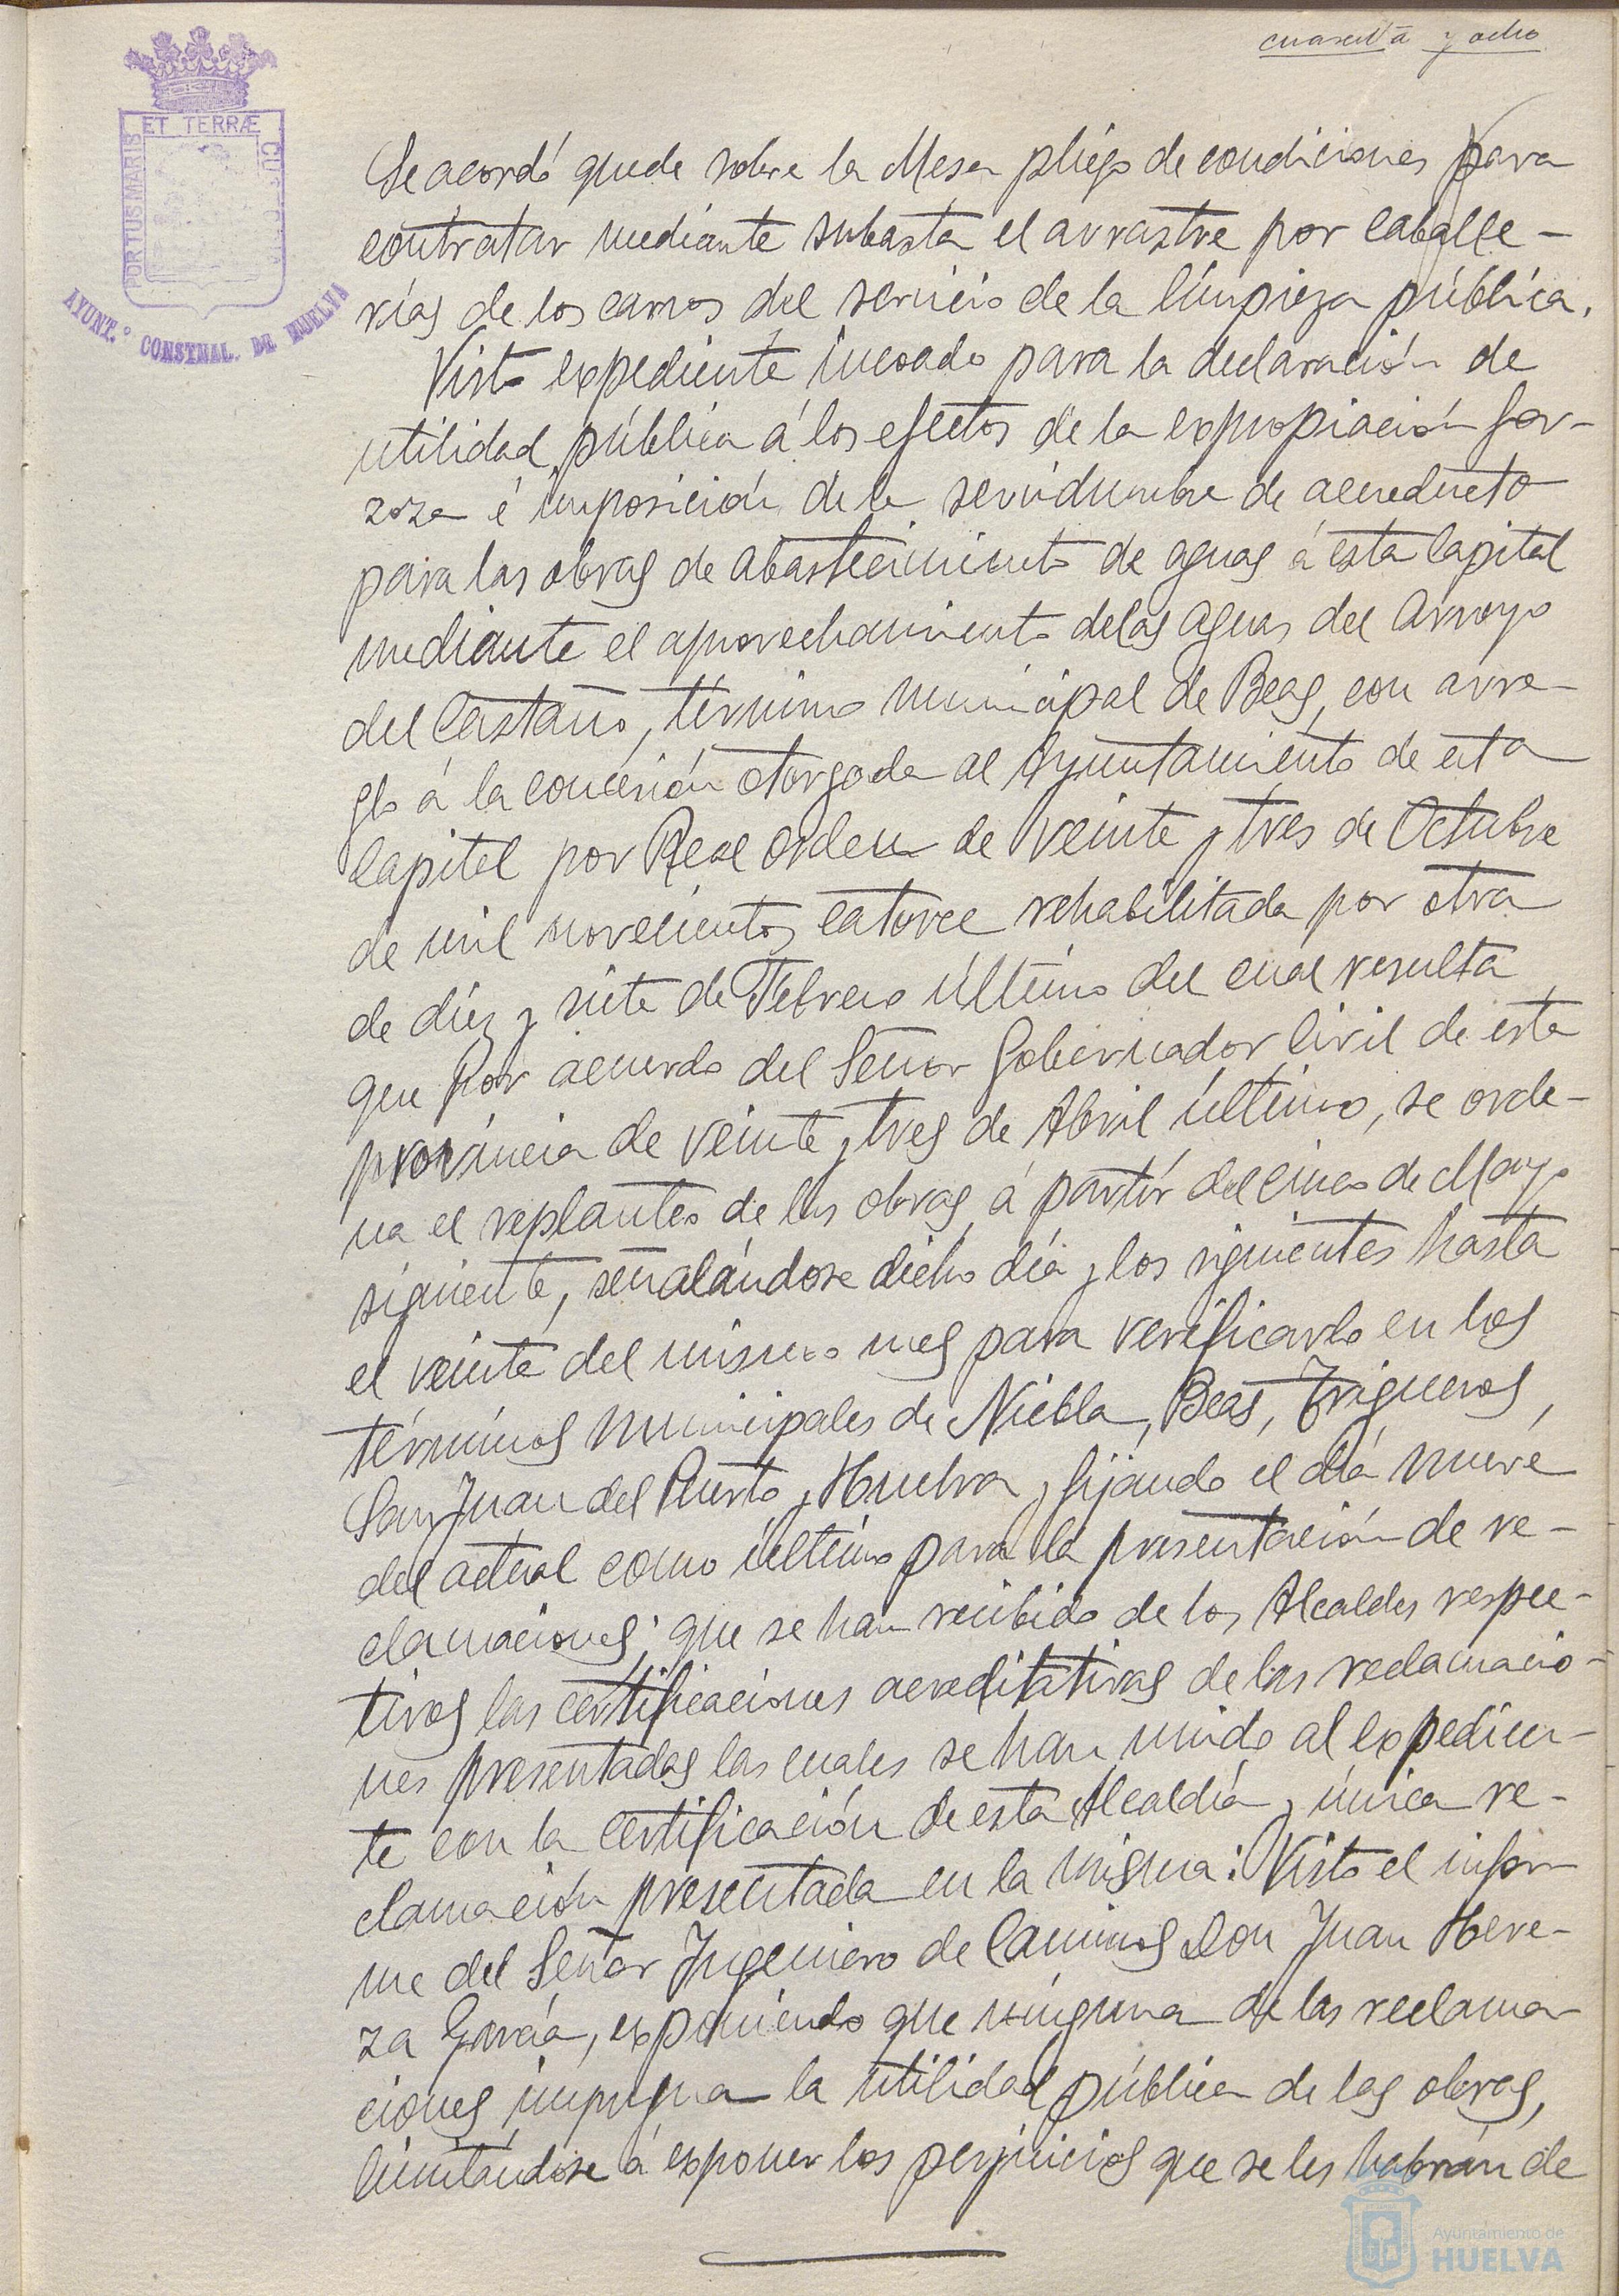 cuarenta y ocho
ET TERRÆ
PORTUS MARIS
CU
AYUNT.º CONSTNAL. DE HUELVA
Se acordó quede sobre la Mesa pliego de condiciones para
contratar mediante subasta el arrastre por caballe-
rías de los carros del servicio de la limpieza pública.
Visto expediente incoado para la declaración de
utilidad pública á los efectos de la expropiación for-
zoza é imposición de la servidumbre de acueducto
para las obras de abastecimiento de aguas á esta Capital
mediante el aprovechamiento de las aguas del Arroyo
del Castaño, término municipal de Beas, con arre-
glo á la concesión otorgada al Ayuntamiento de esta
Capital por Real orden de veinte y tres de Octubre
de mil novecientos catorce rehabilitada por otra
de diez y siete de Febrero último del cual resulta
que por acuerdo del Señor Gobernador Civil de esta
provincia de veinte y tres de Abril último, se orde-
na el replanteo de las obras á partir del cinco de Mayo
siguiente, señalándose dicho día y los siguientes hasta
el veinte del mismo mes para verificarlo en los
términos municipales de Niebla, Beas, Trigueros,
San Juan del Puerto y Huelva y fijando el día nueve
del actual como último para la presentación de re-
clamaciones; que se han recibido de los Alcaldes respec-
tivos las certificaciones acreditativas de las reclamacio-
nes presentadas las cuales se han unido al expedien-
te con la certificación de esta Alcaldía y única re-
clamación presentada en la misma: Visto el infor-
me del Señor Ingeniero de Caminos Don Juan Here-
za García, exponiendo que ninguna de las reclama-
ciones impugna la utilidad pública de las obras,
limitándose á exponer los perjuicios que se les habrán de
Ayuntamiento de
HUELVA